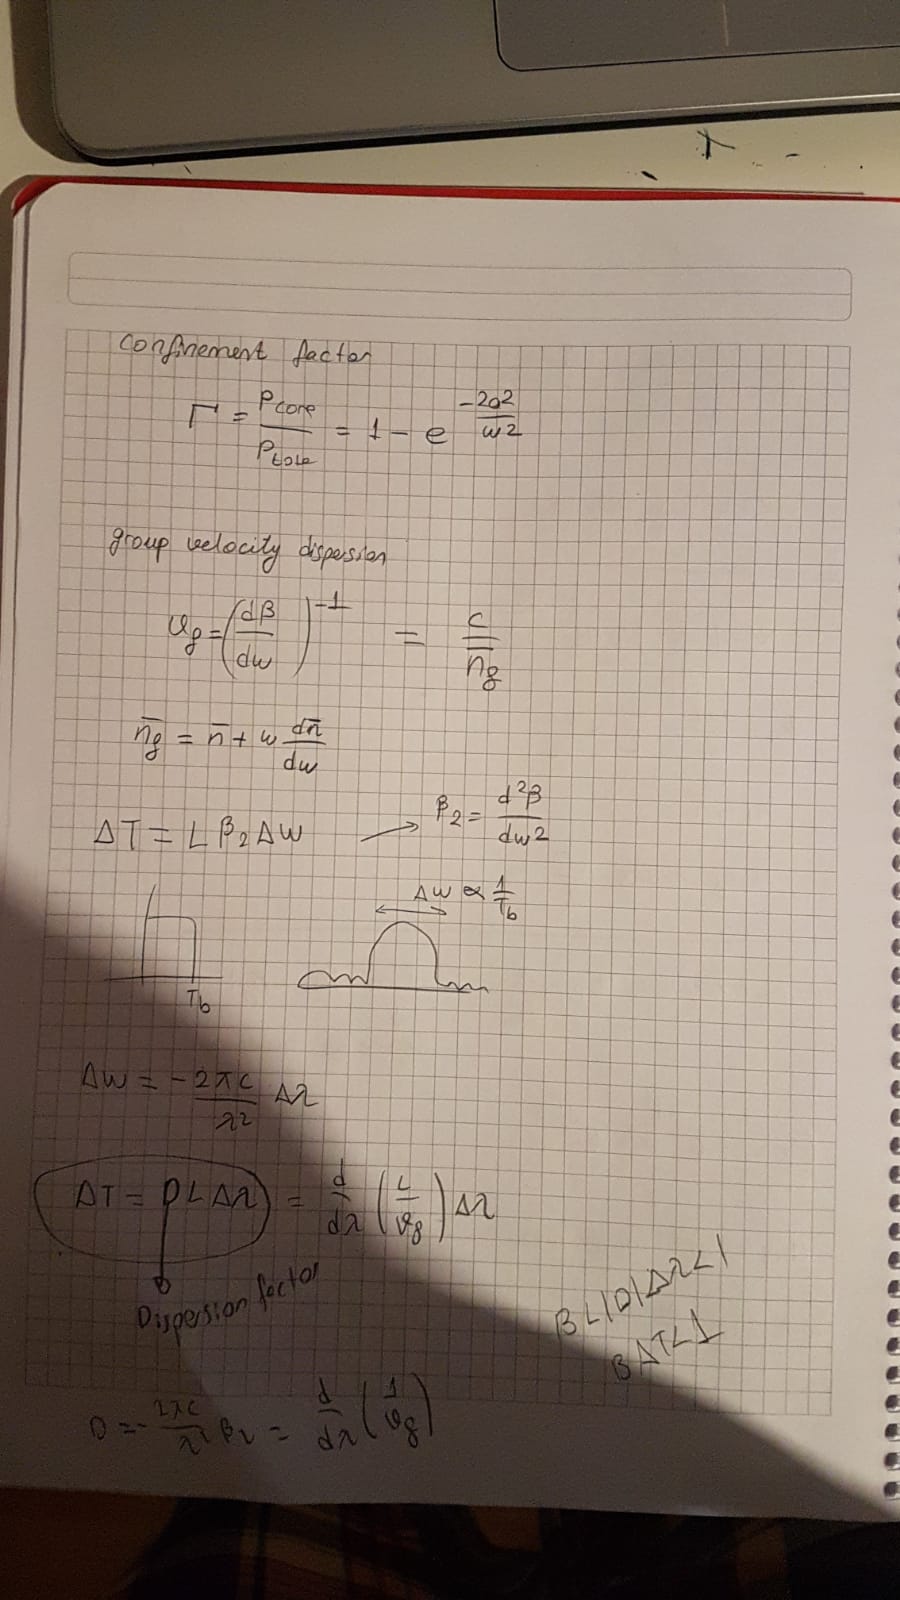 Confinement factor
Γ = Pcore / Ptotal = 1 - e^(-2a2 / w2)
group velocity dispersion
υg = (dβ / dw)^-1 = c / n̄g
n̄g = n̄ + w dn̄ / dw
ΔT = L β2 Δw → β2 = d²β / dw2
Δw ∝ 1 / Tb
Tb
Δw = -2πc / λ2 Δλ
ΔT = DLΔλ = d / dλ (L / υg) Δλ
Dispersion factor
BL|D|Δλ<1
BΔT<1
D = - 2πc / λ² β2 = d / dλ (1 / υg)